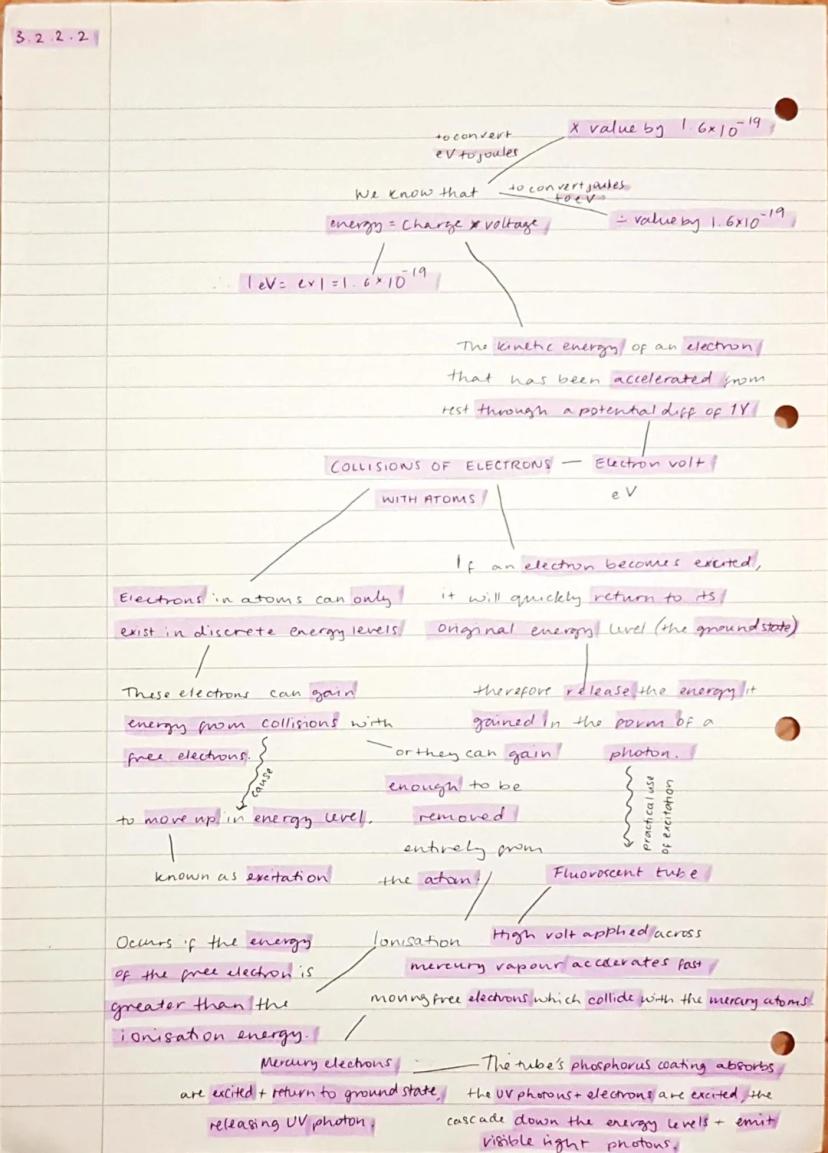 3.2.2.2
to convert
eV to joules
x value by 1.6x10⁻¹⁹
We know that
to convert joules
to eV
÷ value by 1.6x10⁻¹⁹
energy = charge x voltage
1 eV = ex1 = 1.6x10⁻¹⁹
The kinetic energy of an electron
that has been accelerated from
rest through a potential diff of 1V
COLLISIONS OF ELECTRONS — Electron volt
WITH ATOMS
eV
If an electron becomes excited,
it will quickly return to its
original energy level (the ground state)
Electrons in atoms can only
exist in discrete energy levels
These electrons can gain
energy from collisions with
free electrons.
cause
to move up in energy level.
known as excitation
or they can gain
enough to be
removed
entirely from
the atom.
therefore release the energy it
gained in the form of a
photon.
practical use
of excitation
Fluoroscent tube
Ionisation
Occurs if the energy
of the free electron is
greater than the
ionisation energy.
High volt applied across
mercury vapour accelerates fast
moving free electrons which collide with the mercury atoms.
Mercury electrons
are excited + return to ground state,
releasing UV photon.
The tube's phosphorus coating absorbs
the UV photons + electrons are excited, the
cascade down the energy levels + emit
visible light photons.